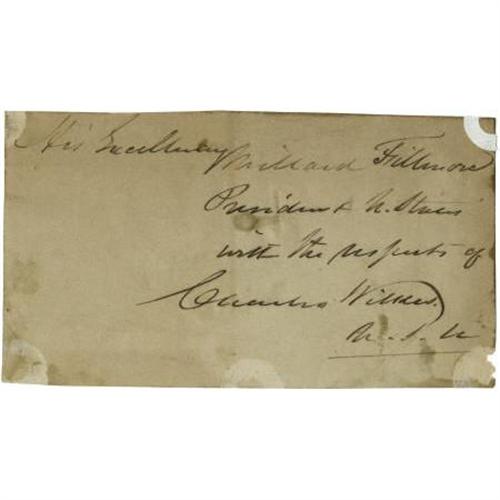 His Excellency Millard Fillmore
President U. States
with the respects of
Charles Wilkes.
U. S. N